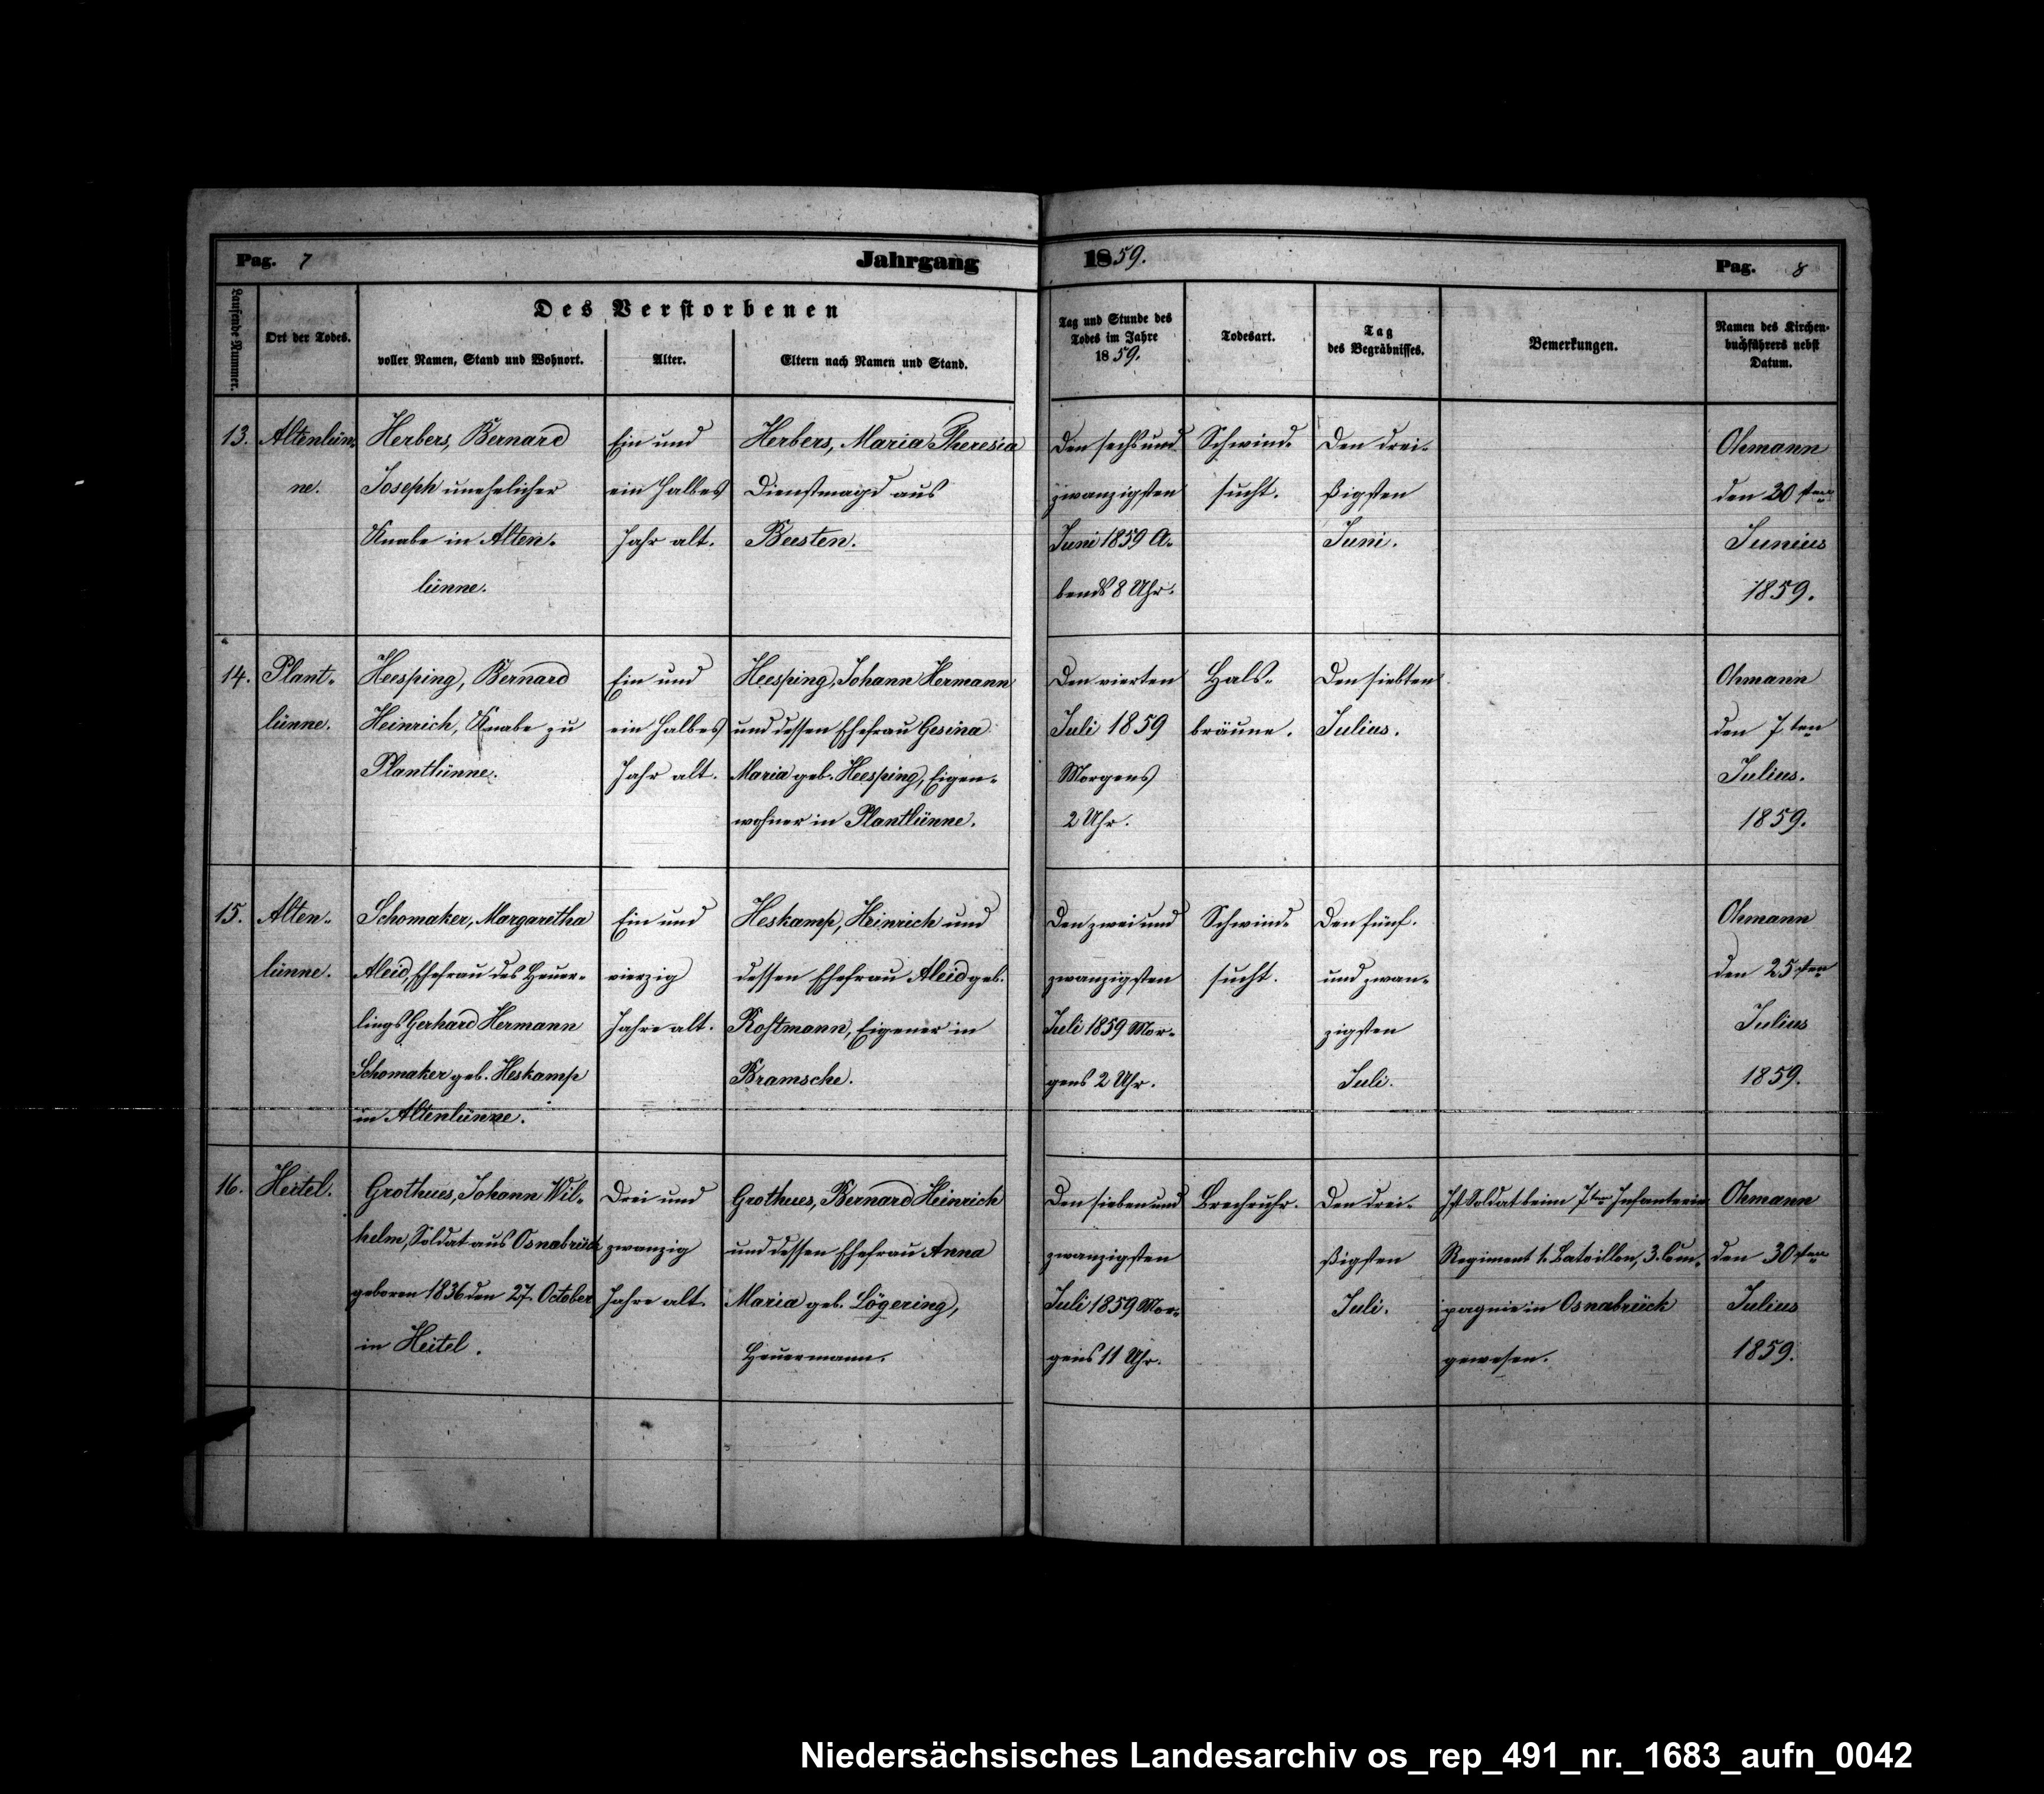 Pag. 7
Jahrgang
1859.
Pag. 8
Laufende Nummer.
Ort der Todes.
Des Verstorbenen
voller Namen, Stand und Wohnort.
Alter.
Eltern nach Namen und Stand.
Tag und Stunde des
Todes im Jahre
1859.
Todesart.
Tag
des Begräbnisses.
Bemerkungen.
Namen des Kirchen-
buchführers nebst
Datum.
13.
Altenlün-
ne.
Herbers, Bernard
Joseph unehelicher
Knabe in Alten-
lünne.
Ein und
ein halbes
Jahr alt.
Herbers, Maria Theresia
Dienstmagd aus
Beesten.
Den sechs und
zwanzigsten
Juni 1859 A-
bends 8 Uhr.
Schwind-
sucht.
Den drei-
ßigsten
Juni.
Ohmann
den 30sten
Junius
1859.
14.
Plant-
lünne.
Heesping, Bernard
Heinrich, Knabe zu
Plantlünne.
Ein und
ein halbes
Jahr alt.
Heesping, Johann Hermann
und dessen Ehefrau Gesina
Maria geb. Heesping, Eigen-
wohner in Plantlünne.
Den vierten
Juli 1859
Morgens
2 Uhr.
Hals-
bräune.
Den siebten
Julius.
Ohmann
den 7ten
Julius.
1859.
15.
Alten-
lünne.
Schomaker, Margaretha
Aleid, Ehefrau des Heuer-
lings Gerhard Hermann
Schomaker geb. Heskamp
in Altenlünne.
Ein und
vierzig
Jahre alt.
Heskamp, Heinrich und
dessen Ehefrau Aleid geb.
Rostmann, Eigener in
Bramsche.
Den zwei und
zwanzigsten
Juli 1859 Mor-
gens 2 Uhr.
Schwind-
sucht.
Den fünf-
und zwan-
zigsten
Juli.
Ohmann
den 25sten
Julius
1859.
16.
Heitel.
Grothues, Johann Wil-
helm, Soldat aus Osnabrück
geboren 1836 den 27. October
in Heitel.
Drei und
zwanzig
Jahre alt.
Grothues, Bernard Heinrich
und dessen Ehefrau Anna
Maria geb. Lögering,
Heuermann.
Den sieben und
zwanzigsten
Juli 1859 Mor-
gens 11 Uhr.
Brechruhr.
Den drei-
ßigsten
Juli.
Ist Soldat beim 7ten Infanterie
Regiment 1. Bataillon, 3. Com-
pagnie in Osnabrück
gewesen.
Ohmann
den 30sten
Julius
1859.
Niedersächsisches Landesarchiv os_rep_491_nr._1683_aufn_0042